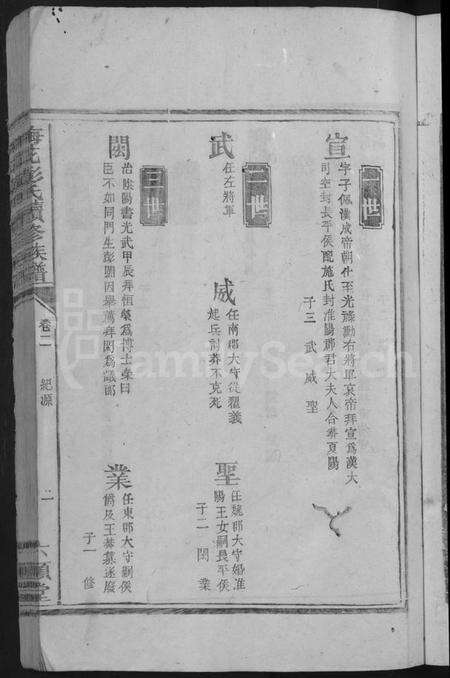 一世
宣
字子佩漢成帝朝仕至光祿勳右將軍哀帝拜宣爲漢大
司空封長平侯配施氏封淮陽郡君大夫人合葬夏陽
子三 武 威 聖
二世
武
任左將軍
威
任南郡太守從翟義
起兵討莽不克死
聖
任魏郡太守婚淮
陽王女嗣長平侯
子二 閎 業
三世
閎
治歐陽書光武甲辰拜桓榮爲博士榮曰
臣不如同門生彭閎因舉薦拜閎爲議郎
業
任東郡太守嗣侯
爵及王莽篡遂廢
子一 修
彭氏續修族譜
卷二 紀源
二
六順堂
FamilySearch